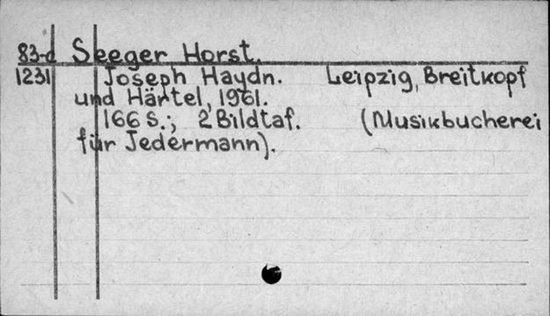 83-d Seeger Horst.
1231 Joseph Haydn. Leipzig, Breitkopf
und Härtel, 1961.
166 S.; 2 Bildtaf. (Musikbucherei
für Jedermann).